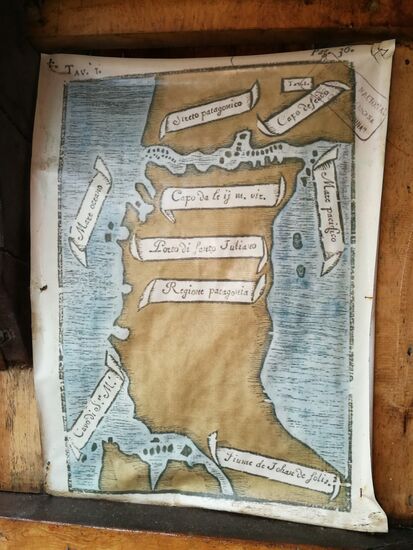 Tav. 1.
Pag. 30.
Streto patagonico
Capo deseado
Mare oceano
Capo da le ii m. vir.
Mare pacifico
Porto di santo Iuliano
Regione patagonia
Cavo di S.ta M.
Fiume de Iohan de solis.